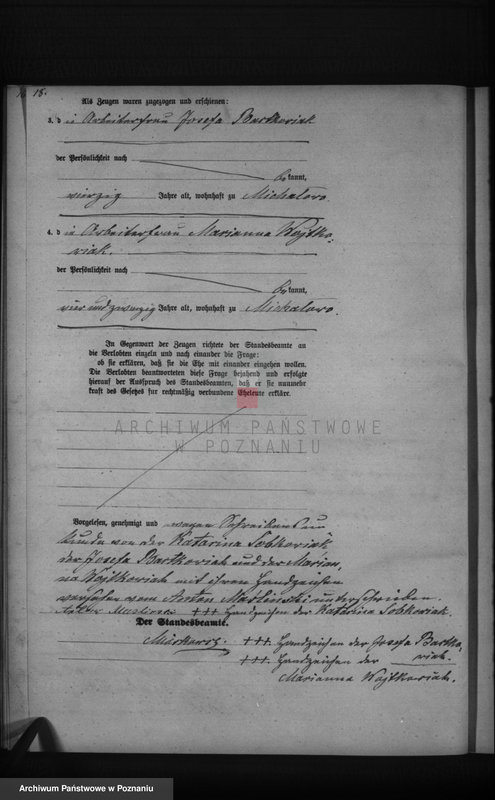 18.
Als Zeugen waren zugezogen und erschienen:
3. d ie Arbeiterfrau Josefa Bartkowiak
der Persönlichkeit nach
be kannt,
vierzig Jahre alt, wohnhaft zu Michalowo
4. d ie Arbeiterfrau Marianna Wojtko-
wiak.
der Persönlichkeit nach
be kannt,
vier und zwanzig Jahre alt, wohnhaft zu Michalowo.
In Gegenwart der Zeugen richtete der Standesbeamte an
die Verlobten einzeln und nach einander die Frage:
ob sie erklären, daß sie die Ehe mit einander eingehen wollen.
Die Verlobten beantworteten diese Frage bejahend und erfolgte
hierauf der Ausspruch des Standesbeamten, daß er sie nunmehr
kraft des Gesetzes für rechtmäßig verbundene Eheleute erkläre.
ARCHIWUM PAŃSTWOWE
W POZNANIU
Vorgelesen, genehmigt und wegen Schreibensun-
kunde von der Katarina Sobkowiak
der Josefa Bartkowiak und der Marian-
na Wojtkowiak mit ihren Handzeichen
versehen vom Anton unterschrieben.
+++ Handzeichen der Katarina Sobkowiak.
Der Standesbeamte.
+++ Handzeichen der Josefa Bartko-
wiak.
+++ Handzeichen der
Marianna Wojtkowiak.
Archiwum Państwowe w Poznaniu